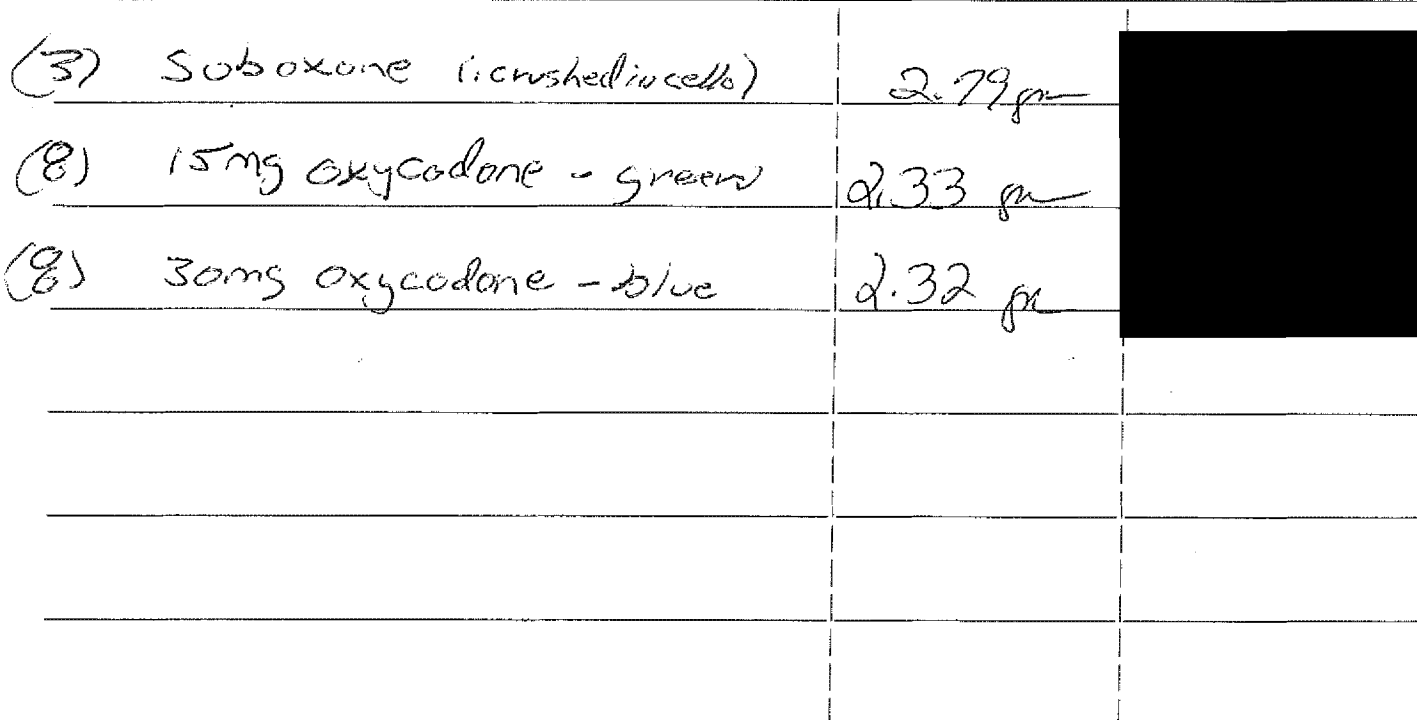 (3) Suboxone (1 crushed in cello) 2.79 gm
(8) 15mg oxycodone - green 2.33 gm
(8) 30mg oxycodone - blue 2.32 gm